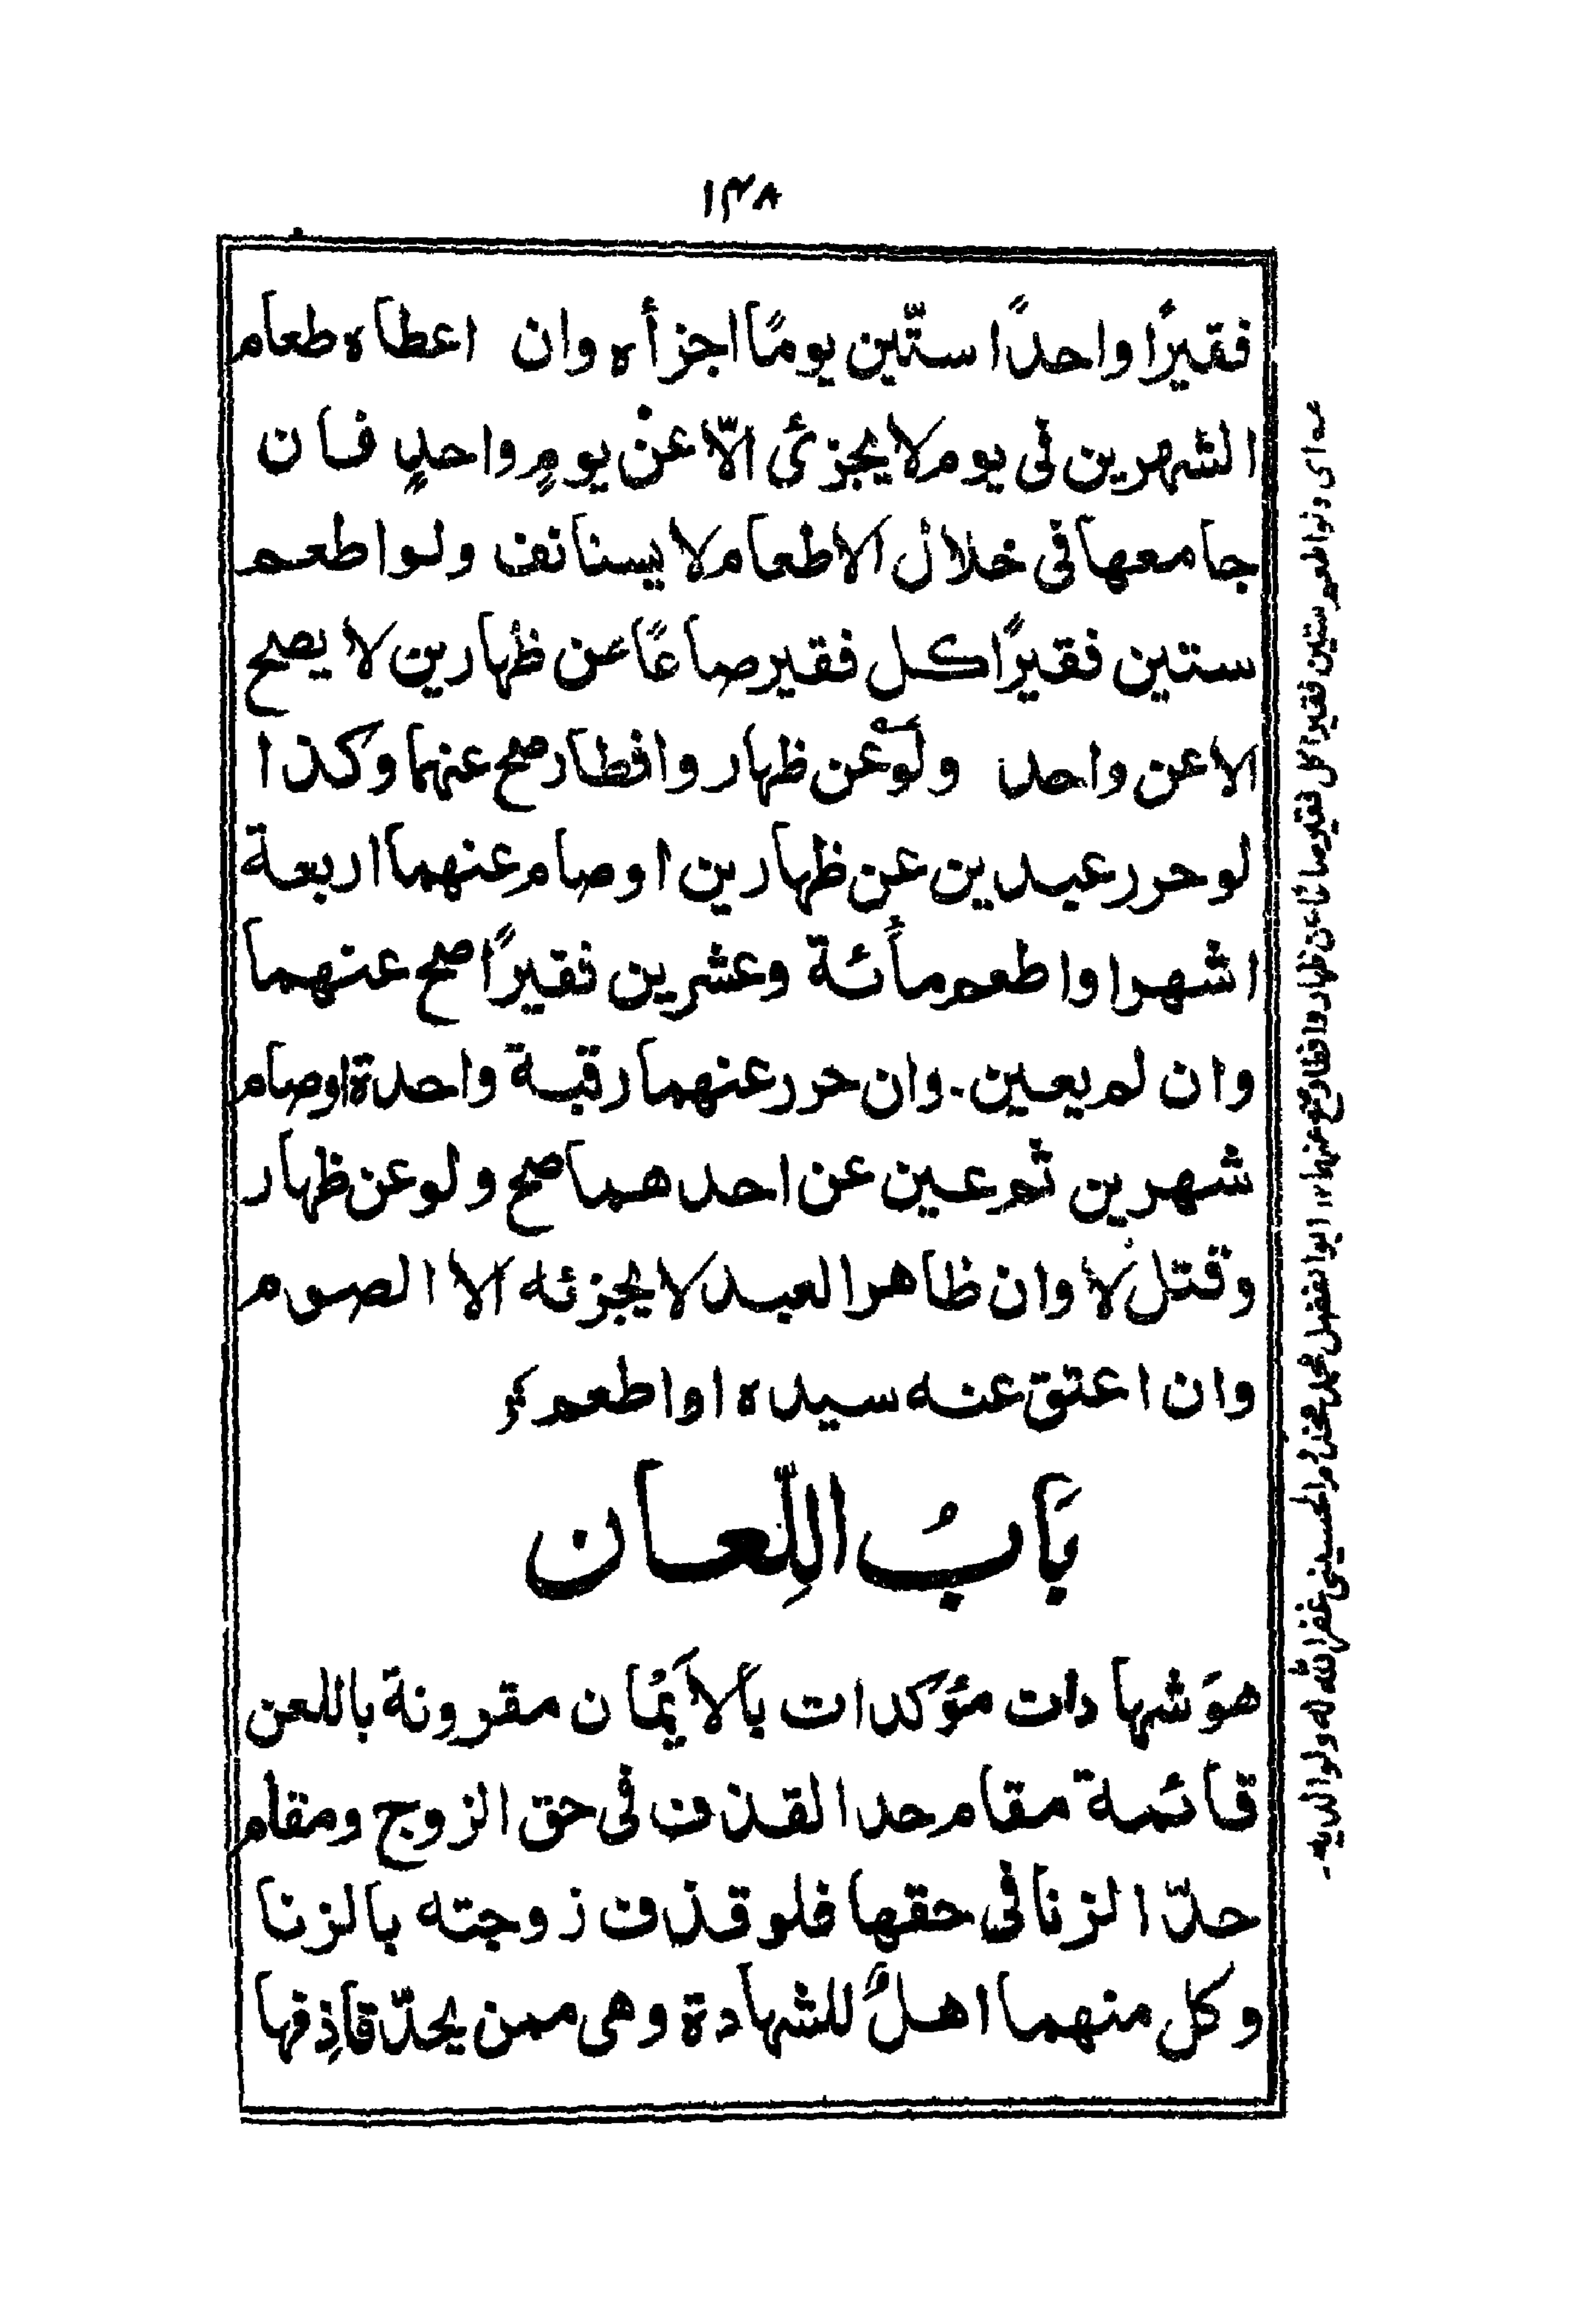 ۱۳۸
فقيرًا واحدًا ستّين يومًا اجزأه وان اعطاه طعام
الشهرين فى يوم لا يجزئ الاّ عنْ يومٍ واحدٍ فان
جامعها فى خلال الاطعام لا يستانف ولو اطعم
ستين فقيرًا كل فقير صاعًا عن ظهارين لا يصح
الا عن واحد ولو عن ظهار وافطار صح عنهما وكذا
لو حرر عبدين عن ظهارين او صام عنهما اربعة
اشهرا و اطعم مأئة وعشرين فقيرًا صح عنهما
وان لم يعين. وان حرر عنهما رقبة واحدة او صام
شهرين ثم عين عن احدهما صح ولو عن ظهار
وقتل لا وان ظاهر العبد لا يجزئه الا الصوم
وان اعتق عنه سيده او اطعم
بَابُ اللِّعان
هوَ شهادات مؤَكدات بالاَيمُان مقرونة باللعن
قائمة مقام حد القذف فى حق الزوج ومقام
حدّ الزنا فى حقها فلو قذف زوجته بالزنا
وكل منهما اهلٌ للشهادة وهى ممن يحدّ قاذِفها
عه اى ولو اطعم ستين فقيرا كل فقير صاعًا عن ظهار وافطار صح عنهما ١٢ ابو الفضل محمد الحسينى غفر الله له ولوالديه۔